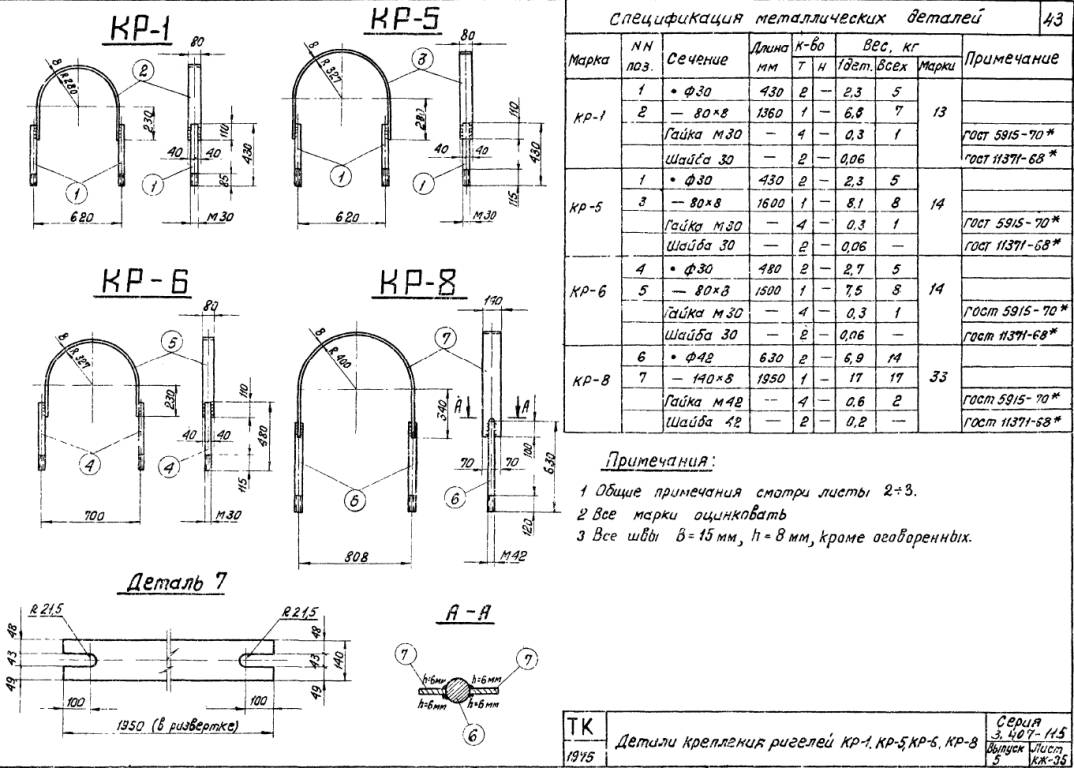 КР-1
КР-5
8
R 280
2
80
230
110
430
40 40
85
1
1
620
М30
8
R 327
3
80
287
110
430
40 40
115
1
1
620
М30
КР-6
КР-8
8
R 327
5
80
230
110
480
40 40
115
4
4
700
М30
8
R 400
7
140
340
А А
100
630
70 70
120
6
6
808
М42
Деталь 7
R 21,5 R 21,5
48 48
43 43 140
49 49
100 100
1950 (в развертке)
А-А
7 7
h=6мм h=6мм
h=6мм h=6мм
6
Спецификация металлических деталей 43
Марка NN поз. Сечение Длина мм К-во Т Н Вес, кг 1дет. Всех Марки Примечание
КР-1 1 • ф30 430 2 — 2,3 5 13
2 — 80×8 1360 1 — 6,8 7
Гайка М30 — 4 — 0,3 1 ГОСТ 5915-70*
Шайба 30 — 2 — 0,06 ГОСТ 11371-68*
КР-5 1 • ф30 430 2 — 2,3 5 14
3 — 80×8 1600 1 — 8,1 8
Гайка М30 — 4 — 0,3 1 ГОСТ 5915-70*
Шайба 30 — 2 — 0,06 — ГОСТ 11371-68*
КР-6 4 • ф30 480 2 — 2,7 5 14
5 — 80×8 1500 1 — 7,5 8
Гайка М30 — 4 — 0,3 1 ГОСТ 5915-70*
Шайба 30 — 2 — 0,06 — ГОСТ 11371-68*
КР-8 6 • ф42 630 2 — 6,9 14 33
7 — 140×8 1950 1 — 17 17
Гайка М42 — 4 — 0,6 2 ГОСТ 5915-70*
Шайба 42 — 2 — 0,2 — ГОСТ 11371-68*
Примечания:
1 Общие примечания смотри листы 2÷3.
2 Все марки оцинковать
3 Все швы В=15 мм, h=8 мм, кроме оговоренных.
ТК
1975
Детали крепления ригелей КР-1, КР-5, КР-6, КР-8
Серия
3.407-115
Выпуск 5
Лист КЖ-35